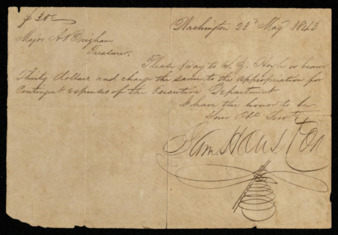 $30. Washington 23d May 1843
Major A S Brigham
Treasurer
Please pay to W. G. or bearer
Thirty dollars and charge the same to the appropriation for
Contingent expenses of the Executive Department
I have the honor to be
Your Obt Servt
Sam Houston